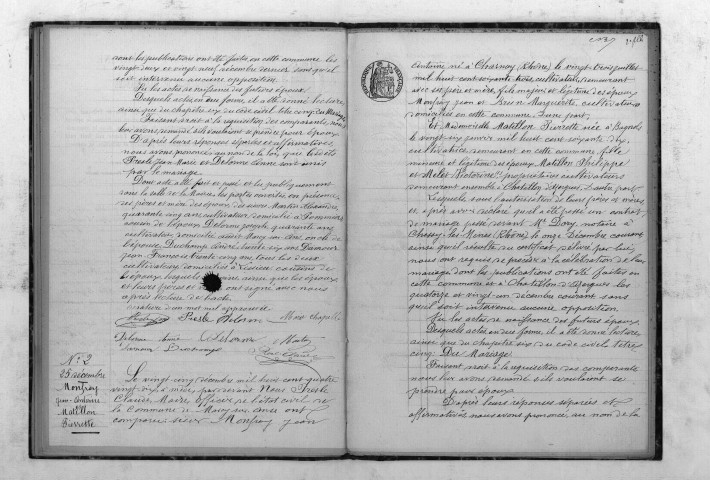 dont les publications ont été faites en cette commune les
vingt deux et vingt neuf décembre dernier sans qu'il
soit intervenu aucune opposition.
Vu les actes de naissance des futurs époux
Desquels actes en due forme, il a été donné lecture
ainsi que du chapitre six du code civil titre cinq du Mariage
Faisant droit à la réquisition des comparants, nous
leur avons demandé s'ils voulaient se prendre pour époux
D'après leurs réponses séparées et affirmatives,
nous avons prononcé au nom de la loi que les dits
Presle Jean Marie et Delorme Anne sont unis
par le mariage.
Dont acte a été fait et passé et lu publiquement
dans la salle de la Mairie les portes ouvertes en présence
des pères et mères des époux de Martin
quarante cinq ans cultivateur domicilié à Pommiers
cousin de l'époux Delorme Joseph quarante ans
cultivateur domicilié audit Moiré oncle de
l'épouse Duchamp André trente six ans Damour
Jean François trente cinq ans tous les deux
cultivateurs domiciliés à
l'époux, lesquels ainsi que les époux
et leurs pères et ont signé avec nous
après lecture du tout.
Presle Delorme Marie Chapelle
Delorme Anne Delorme Martin
Damour Duchamp
N° 2
25 décembre
Monfray
Jean-Antoine
Matillon
Pierrette
Le vingt cinq décembre mil huit cent quatre
vingt dix à midi, par devant Nous Presle
Claude, Maire, officier de l'état civil de
la Commune de Moiré sus dites ont
comparu sieur Monfray Jean
Antoine né à Charnay (Rhône) le vingt trois juillet
mil huit cent soixante trois cultivateur, demeurant
avec ses père et mère, fils majeur et légitime des époux
Monfray Jean et Brun Marguerite, cultivateurs
domiciliés en cette commune d'une part,
Et Mademoiselle Matillon Pierrette née à Bagnols
le vingt six janvier mil huit cent soixante dix,
cultivatrice demeurant en cette commune, fille
mineure et légitime des époux Matillon Philippe
et Melet Victorine propriétaires cultivateurs
demeurant ensemble à Chatillon d'Azergues d'autre part
Lesquels, sous l'autorisation de leurs pères et mères
et, après avoir déclaré qu'il a été passé un contrat
de mariage passé devant Me Dory notaire à
Chessy-les-Mines (Rhône) le onze Décembre courant
ainsi qu'il résulte du certificat délivré par lui,
nous ont requis de procéder à la célébration de leur
mariage dont les publications ont été faites en
cette commune et à Chatillon d'Azergues les
quatorze et vingt-un décembre courant sans
qu'il soit intervenu aucune opposition
Vu les actes de naissance des futurs époux.
Desquels actes en due forme, il a été donné lecture
ainsi que du chapitre six du code civil titre
cinq Du Mariage.
Faisant droit à la réquisition des comparants
nous leur avons demandé s'ils voulaient se
prendre pour époux
D'après leurs réponses séparées et
affirmatives nous avons prononcé au nom de la